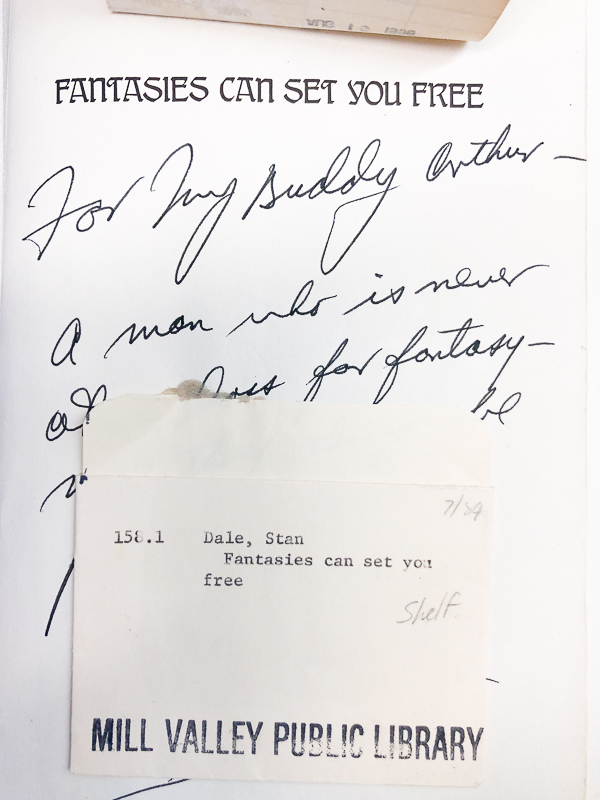 FANTASIES CAN SET YOU FREE
For My Buddy Arthur —
A man who is never
loss for fantasy —
7/84
158.1 Dale, Stan
Fantasies can set you
free
Shelf.
MILL VALLEY PUBLIC LIBRARY